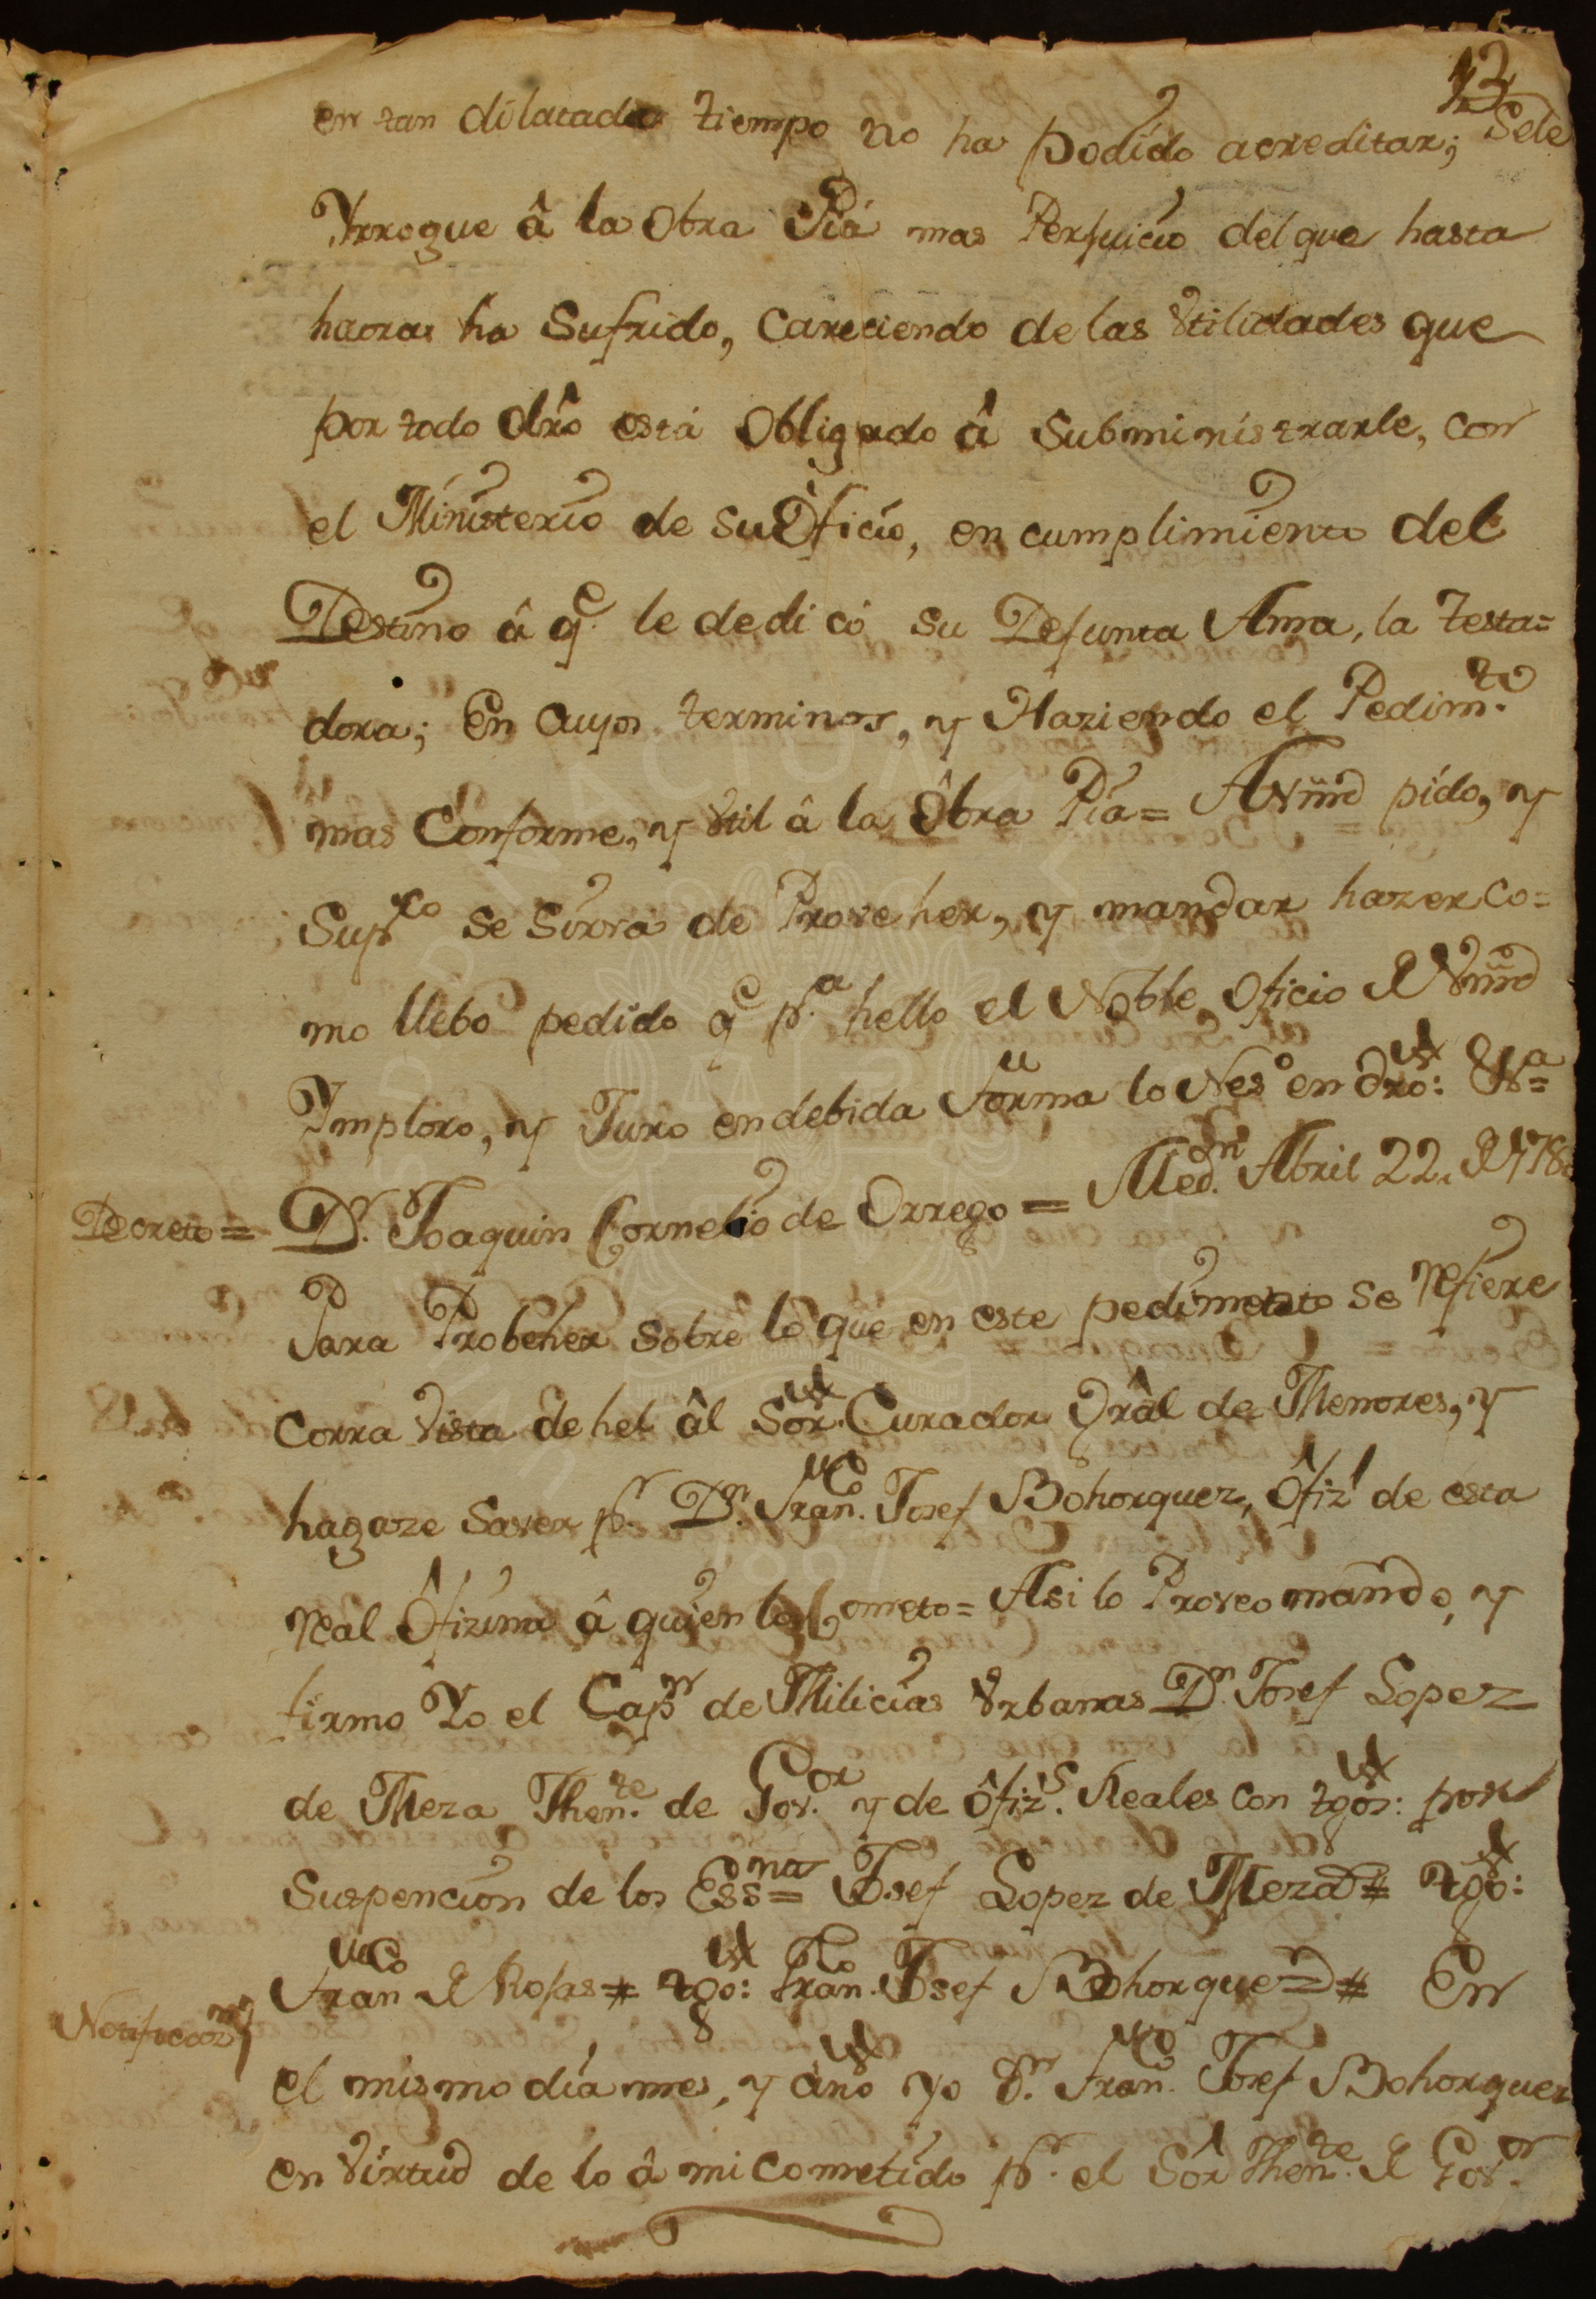 13
en tan dilatado tiempo no ha podido acreditar; Sele
Yrrogue â la Obra Piá mas Perjuicio del que hasta
haora ha Sufrido, Careciendo de las Vtilidades que
por todo dr̂o está Obligado â Subministrarle, con
el Ministerio de su Oficio, en cumplimiento del
Destino â q.e le dedicó su Defunta Ama, la Testa=
dora; En Cuyos terminos, y Haziendo el Pedim.to
mas Conforme, y Vtil â la Ôbra Pia= A Vmd pido, y
Supco se Sirva de Proveher, y mandar hazer co=
mo llebo pedido q.e p.a hello el Noble Oficio de Vmd
Ymploro, y Juro en debida Forma lo Neso en dro: Va=
Decreto= D.r Joaquin Cornelio de Orrego = Med.n Abril 22. de 178
Para Probeher sobre lo que en este pedimento se refiere
corra Vista de hel âl Sor. Curador Grâl de Menores, y
hagaze saver p.r D.n Fran.co Josef Bohorquez, Ôfizl de esta
real Ôfizina â quien lo Cometo= Asi lo Proveo mando, y
firmo Yo el Capn de Milicias Vrbanas D.n Josef Lopez
de Meza Then.te de Gov.or y de Ôfiz.s Reales con tgos: por
Suspencion de los Essnos= Josef Lopez de Meza= tgo:
Franco de Rojas= tgo: Fran.co Josef Bohorquez= En
Notificaon
el mismo día mes, y año yo D.n Fran.co Josef Bohorquez
en Virtud de lo â mi cometido p.r el Sôr Then.te de Gov.or